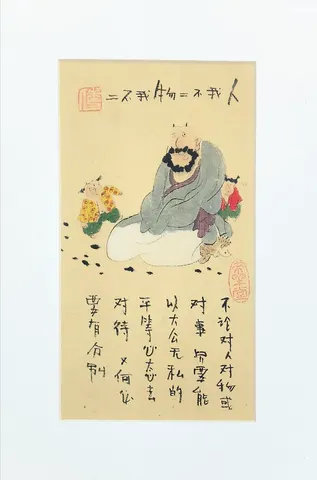 人我不二物我不二
不论对人对物或
对事要能
以大公无私的
平等心态去
对待又何必
要有分别